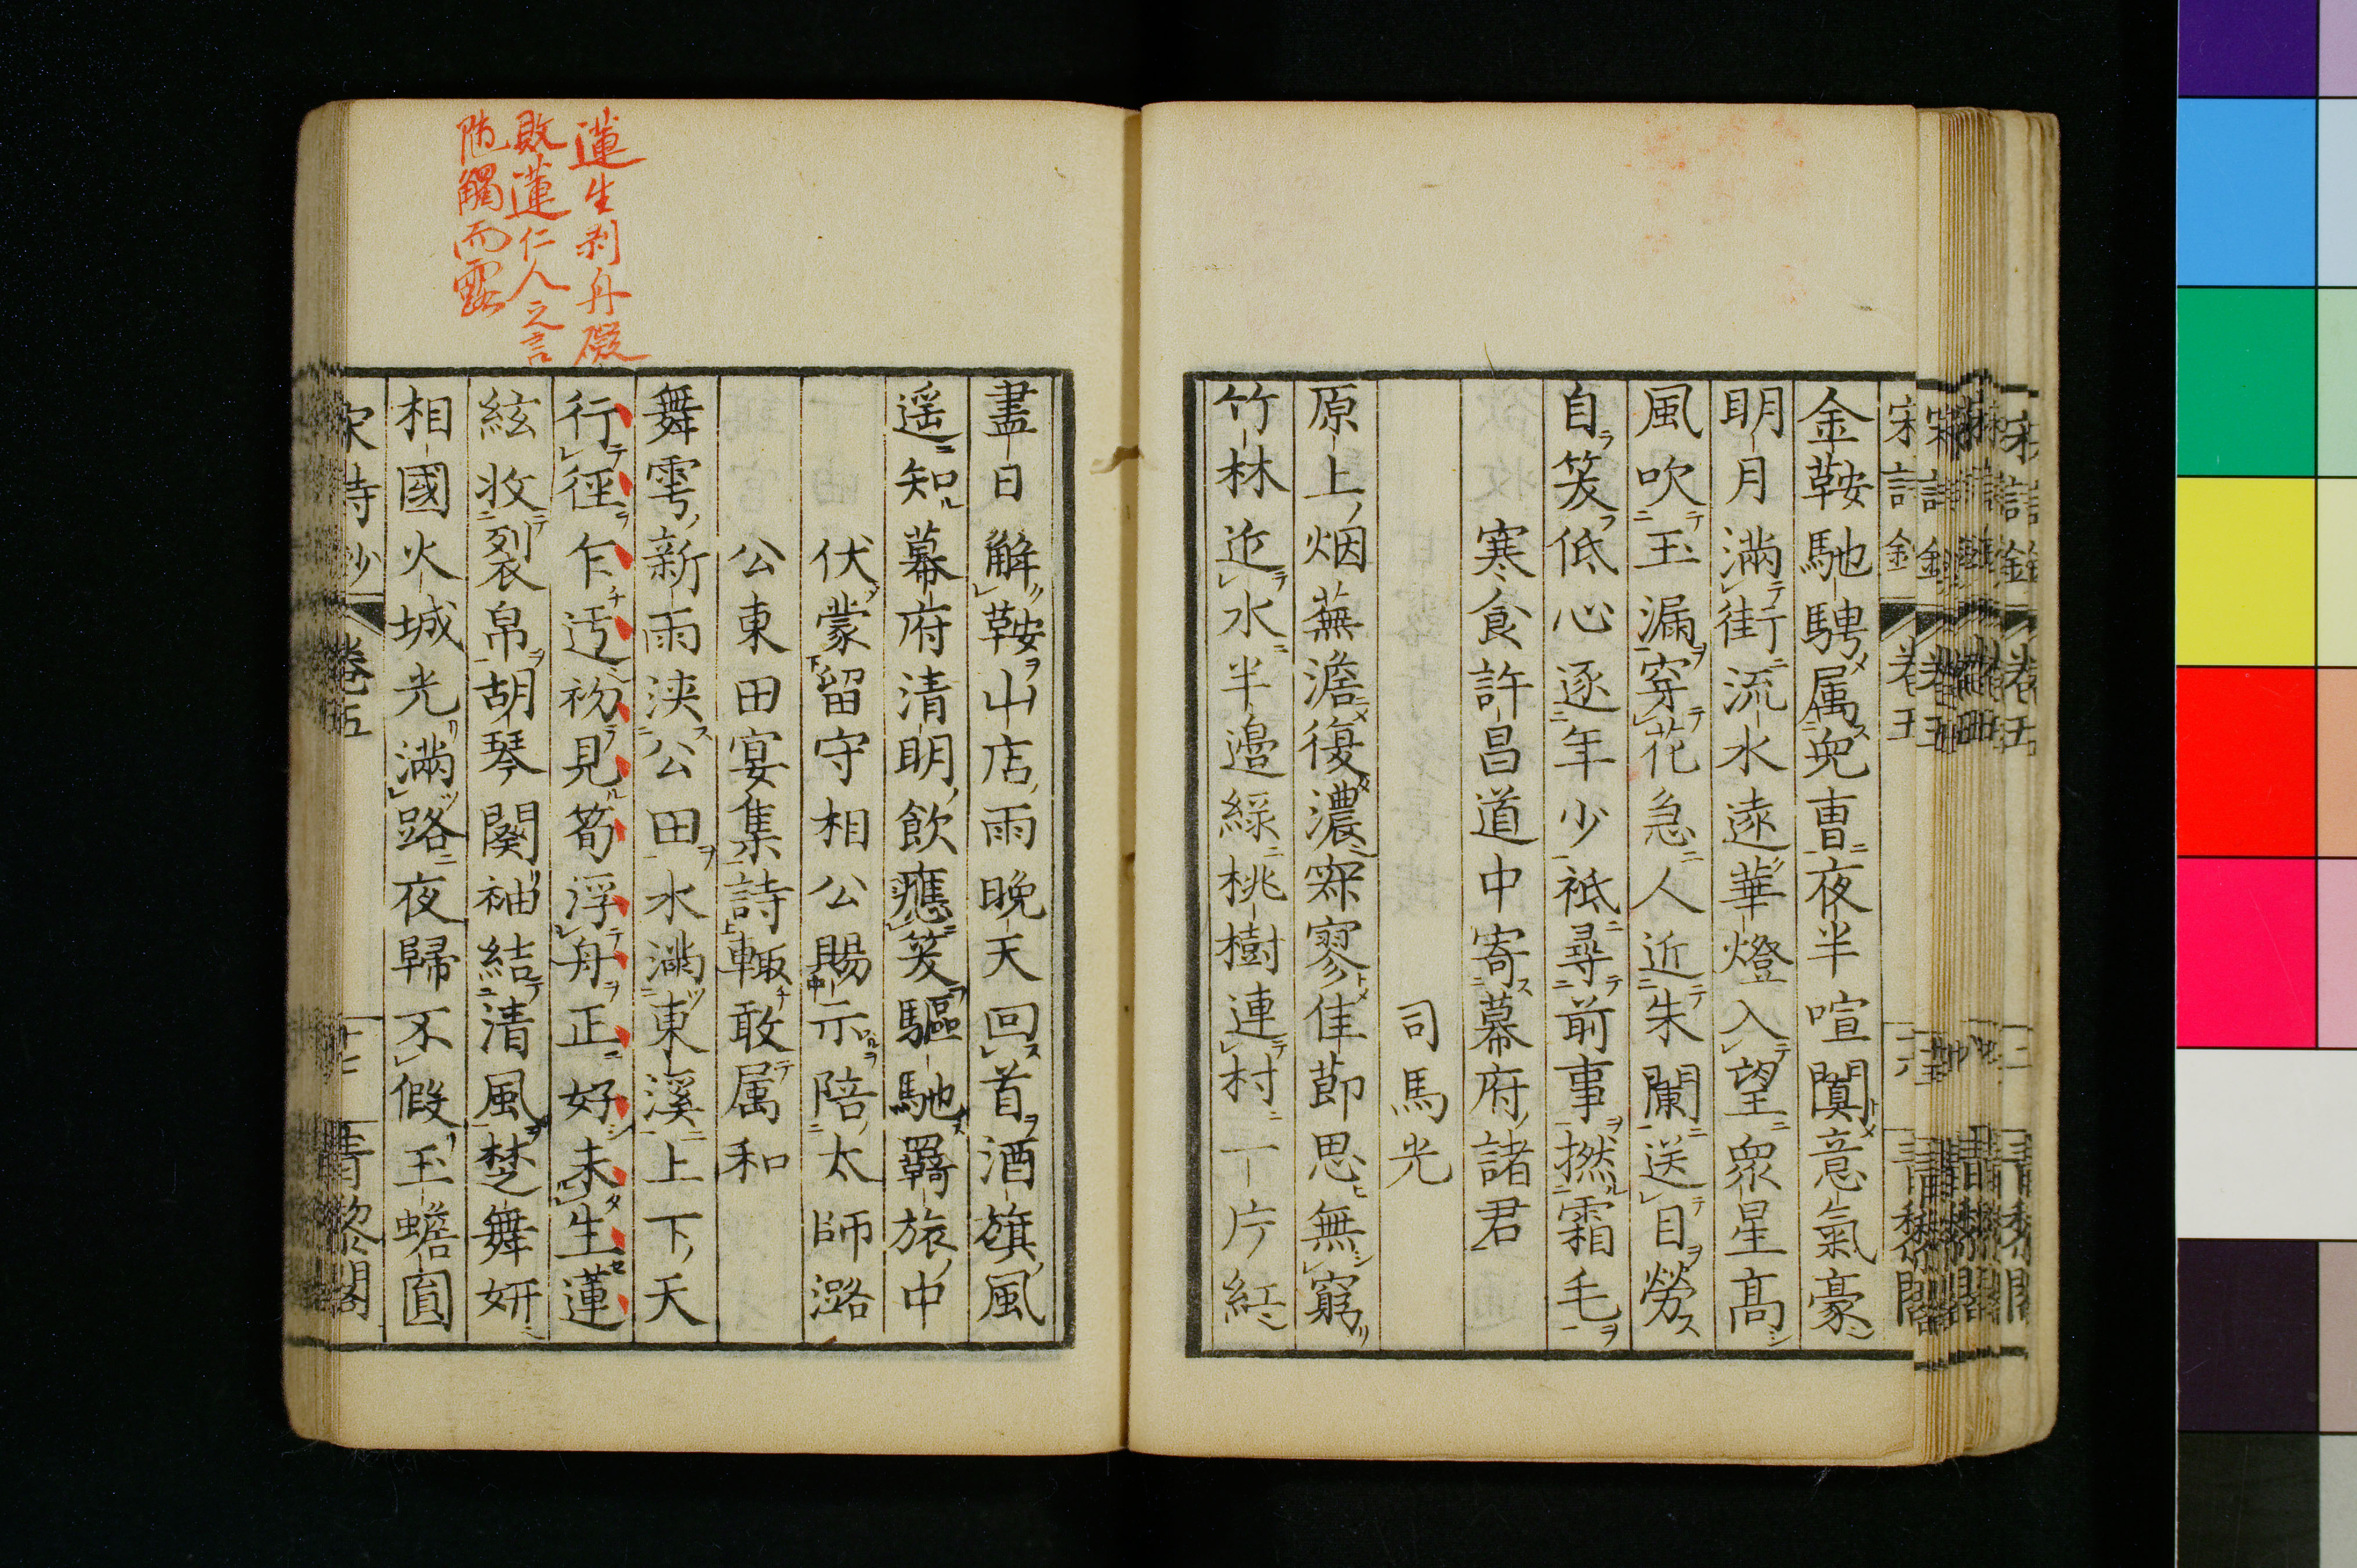 金鞍馳騁属兜曹夜半喧闐意氣豪
明月滿街流水遠華燈入望衆星髙
風吹玉漏穿花急人近朱闌送目勞
自笑低心逐年少祗尋前事撚霜毛
寒食許昌道中寄幕府諸君
司馬光
原上烟蕪澹復濃寂寥佳節思無窮
竹林近水半邊綠桃樹連村一片紅
盡日解鞍山店雨晚天回首酒旗風
遥知幕府清明飲應笑驅馳羇旅中
伏蒙留守相公賜示陪太師潞
公東田宴集詩輙敢属和
舞雩新雨浹公田水滿東溪上下天
行徑乍迃初見筍浮舟正好未生蓮
絃收裂帛胡琴闋袖結清風楚舞妍
相國火城光滿路夜歸不假玉蟾圓
蓮生剥舟礙
敗蓮仁人之言
隨觸而露
卷五
青黎閣